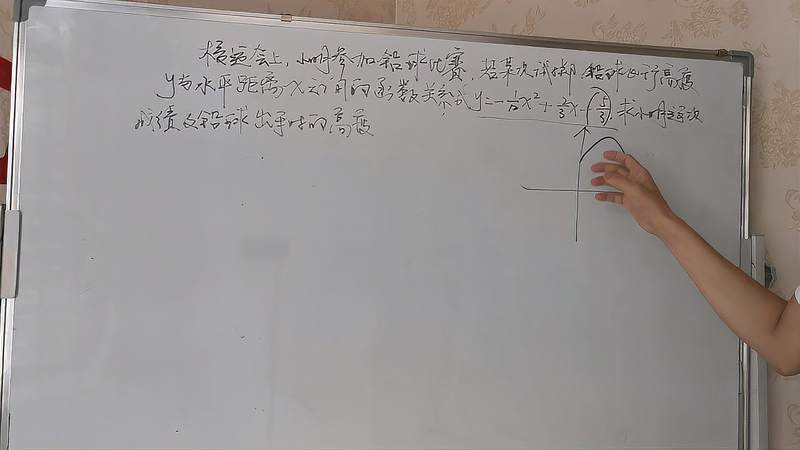 校运会上,小明参加铅球比赛,若某次试掷,铅球飞行高度
y与水平距离x之间的函数关系式y=-1/12x²+2/3x-5/3,求小明这次
成绩及铅球出手时的高度